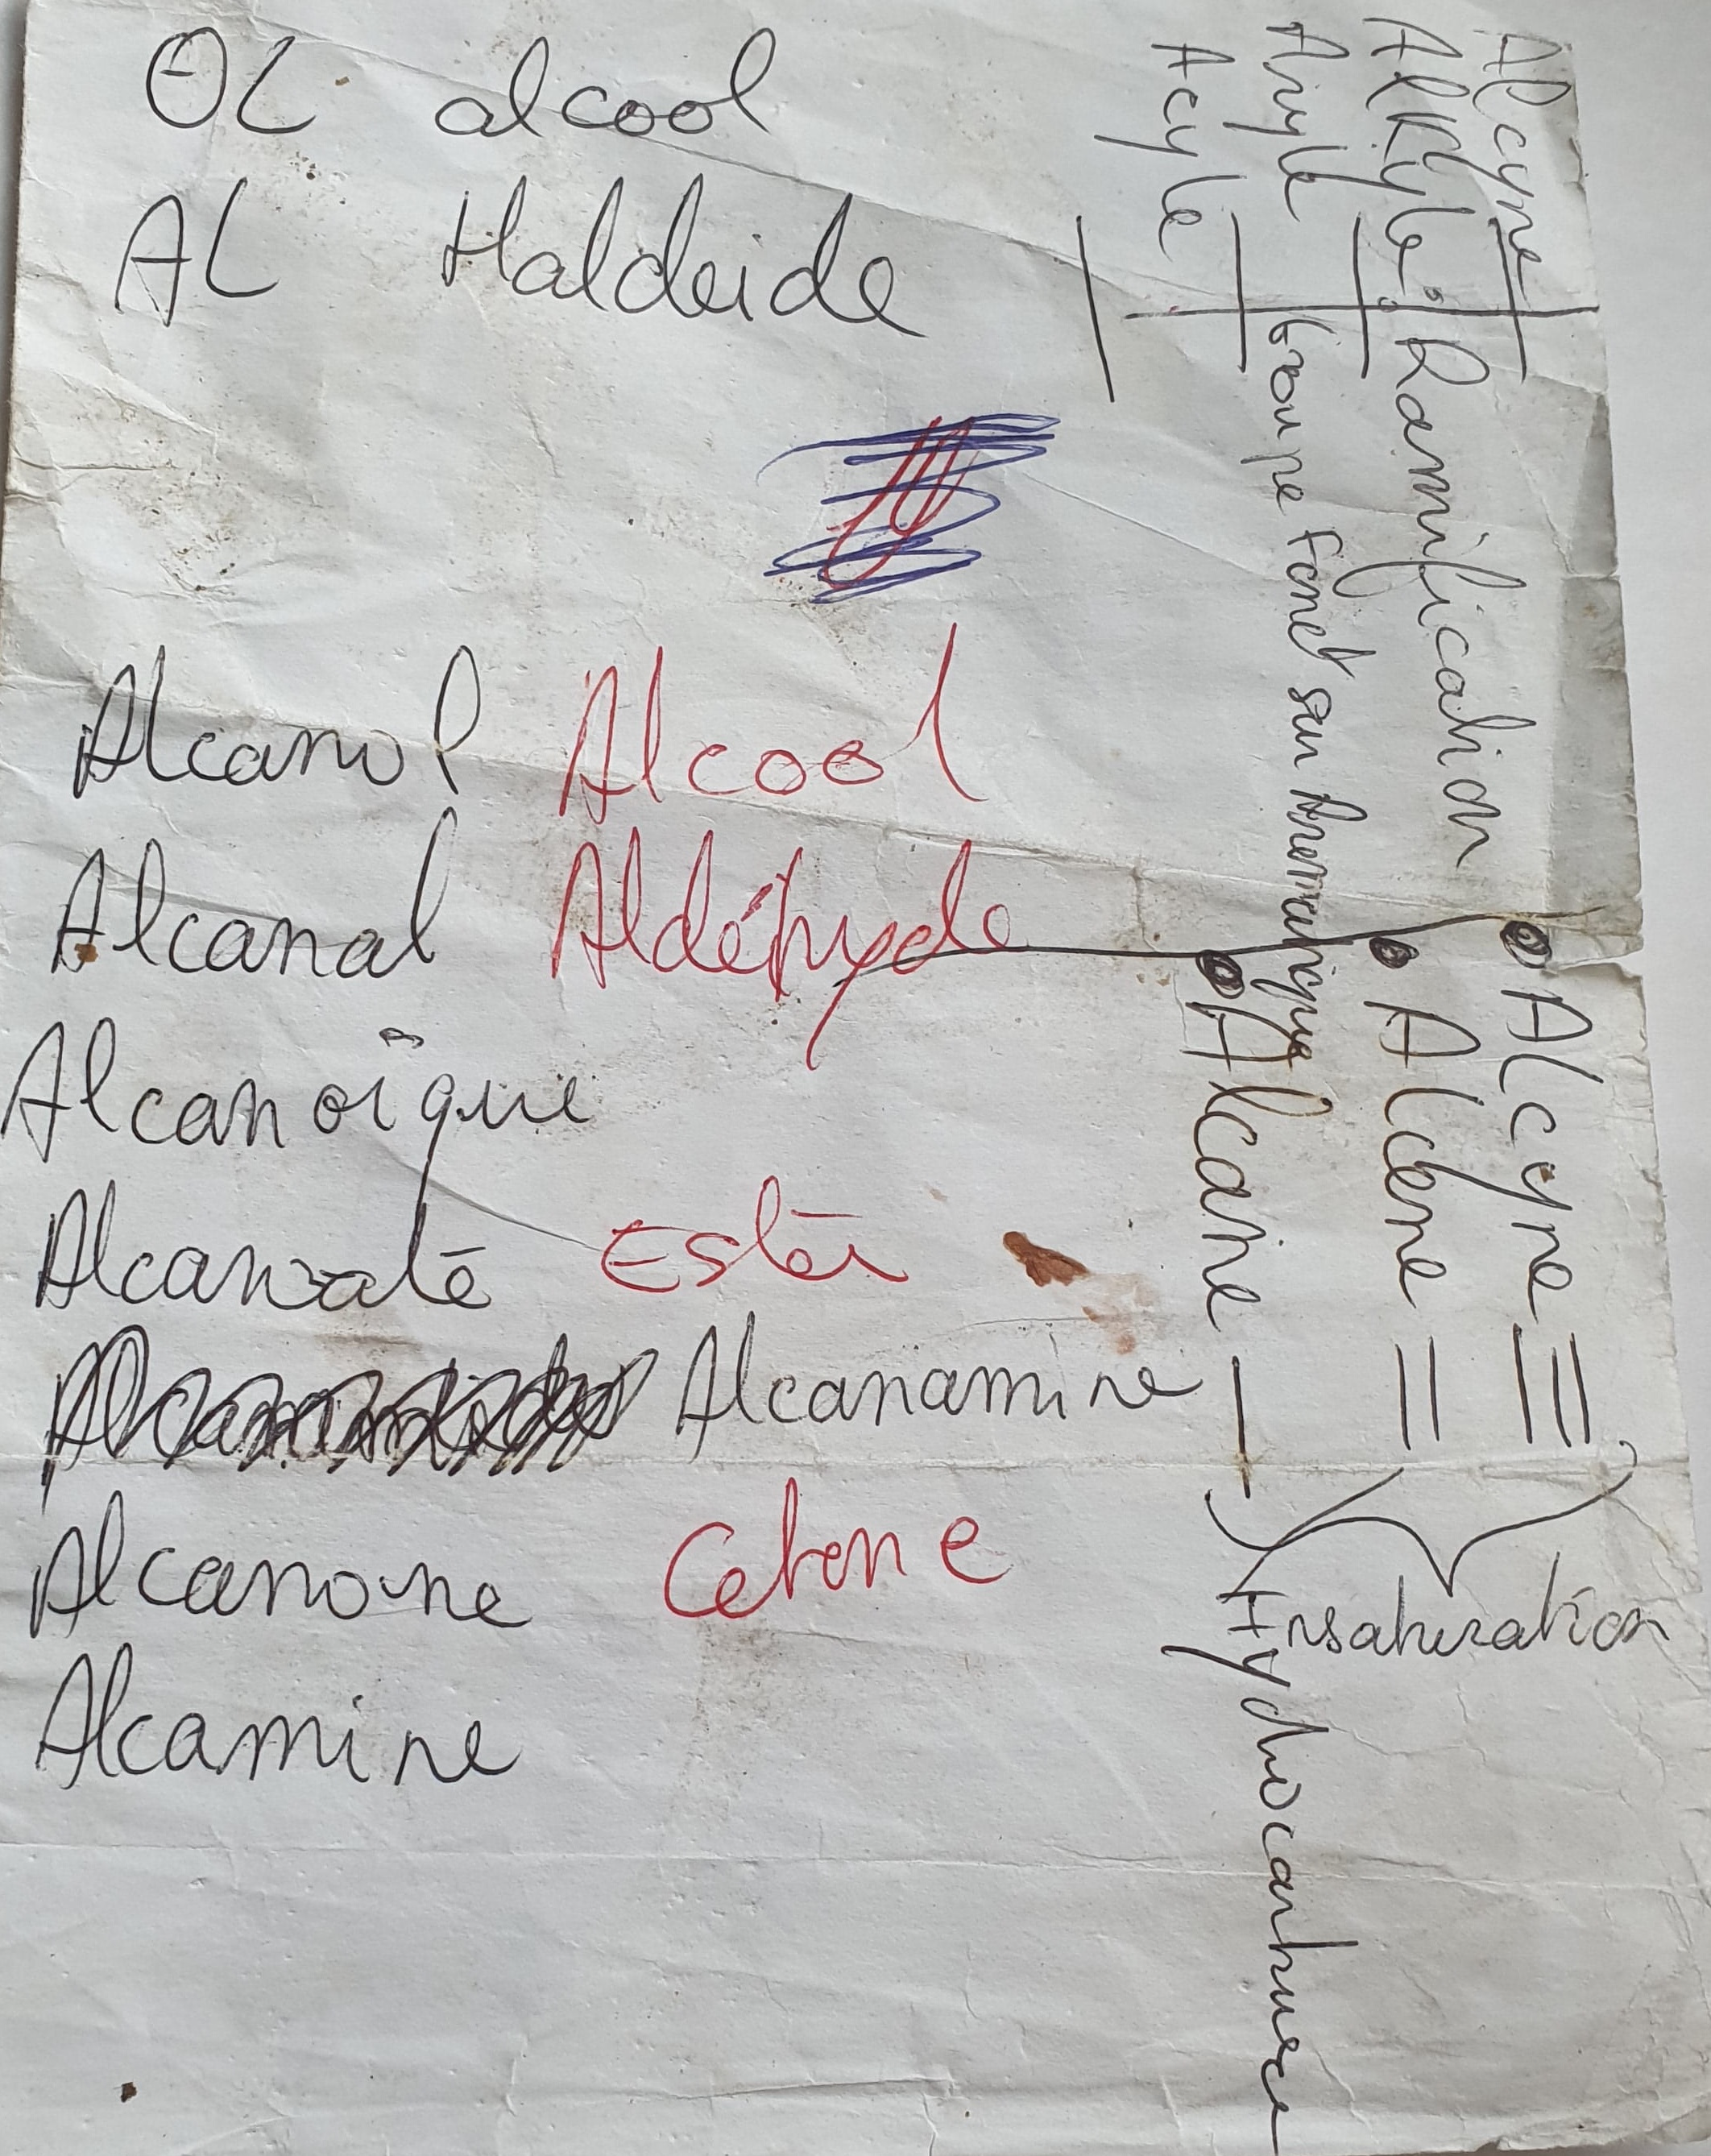 OL alcool
AL Haldeide
Alcanol Alcool
Alcanal Aldéhyde
Alcanoïque
Alcanoate Ester
Alcanamine
Alcanone Cetone
Alcamine
Alcyne
Alkyle : Ramification
Aryle Groupe Fonct sur Aromatique
Acyle
Alcyne ≡
Alcene =
Alcane —
Insaturation
Hydrocarbures